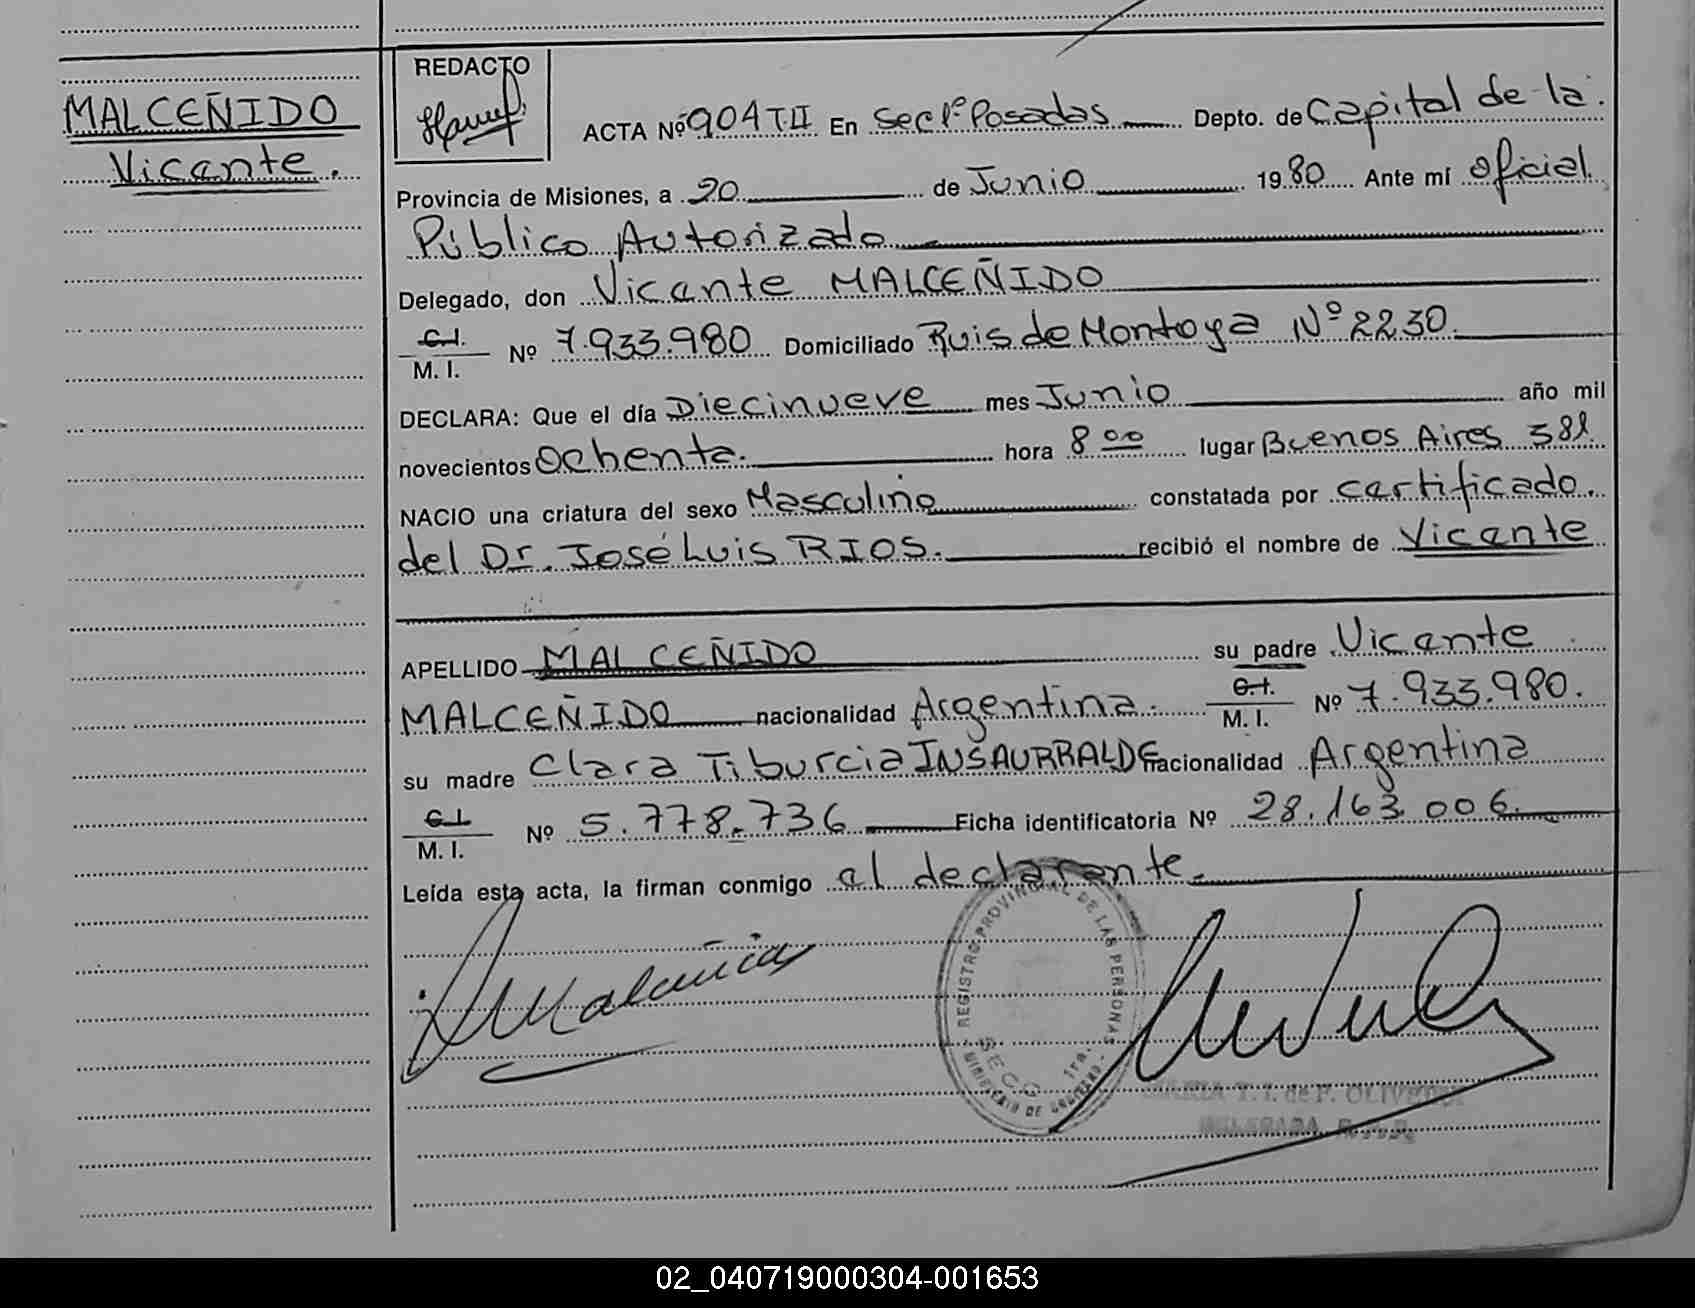 MALCEÑIDO
Vicante.
REDACTO
ACTA Nº 904 TII En Secc 1º Posadas Depto. de Capital de la
Provincia de Misiones, a 20 de Junio 1980 Ante mí oficial
Público Autorizado
Delegado, don Vicante MALCEÑIDO
C.I.
M. I. Nº 7.933.980 Domiciliado Ruis de Montoya Nº 2230.
DECLARA: Que el día Diecinueve mes Junio año mil
novecientos Ochenta. hora 8 00 lugar Buenos Aires 381
NACIO una criatura del sexo Masculino constatada por certificado.
del Dr. José Luis RIOS. recibió el nombre de Vicante
APELLIDO MALCEÑIDO su padre Vicante
MALCEÑIDO nacionalidad Argentina. C.I. M. I. Nº 7.933.980.
su madre Clara Tiburcia INSAURRALDE nacionalidad Argentina
C.I.
M. I. Nº 5.778.736 Ficha identificatoria Nº 28.163.006.
Leída esta acta, la firman conmigo al declarante.
REGISTRO PROVINCIAL DE LAS PERSONAS
SECC. 1ra.
MINISTERIO DE GOBIERNO
MARIA T. I. de F. OLIVEIRA
DELEGADA
02_040719000304-001653